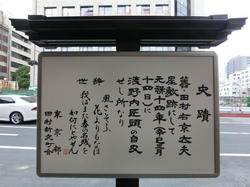 史蹟
舊・田村右京太夫
屋敷跡にして
元祿十四年(辛巳)三月
十四日に
浅野内匠頭の自刃
せし所なり
辞世
風さそふ
花よりもなほ
我はまた春の名残を
如何にとやせん
東京都